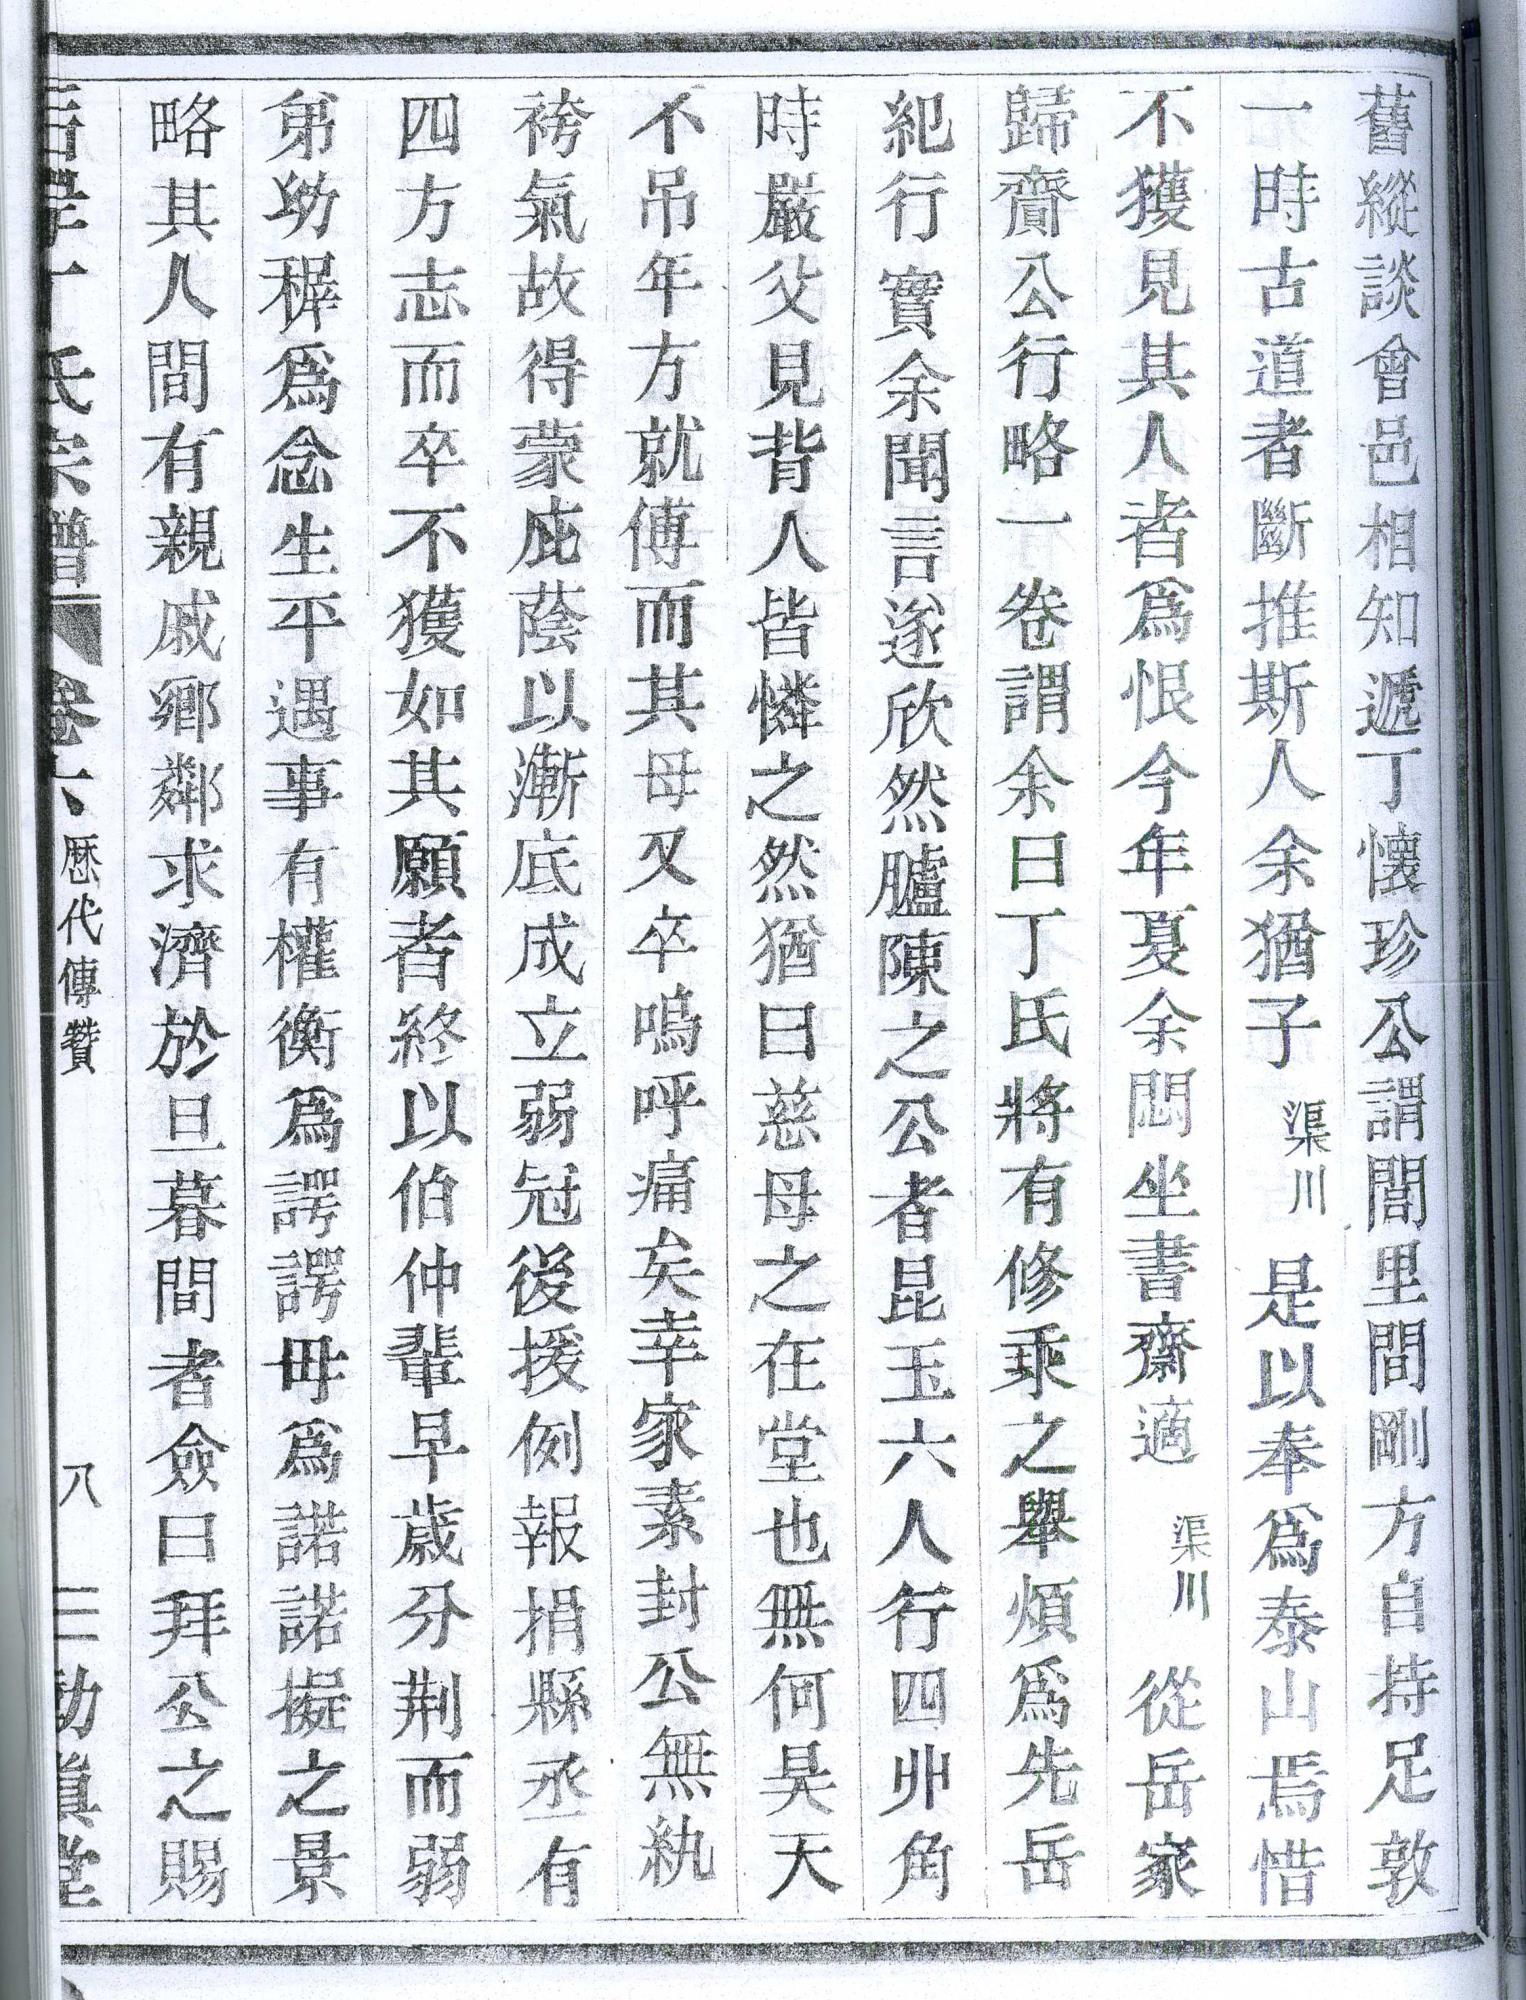 舊縱談會邑相知遞丁懷珍公謂閭里間剛方自持足敦
一時古道者斷推斯人余猶子渠川是以奉爲泰山焉惜
不獲見其人者爲恨今年夏余悶坐書齋適渠川從岳家
歸齎公行略一卷謂余曰丁氏將有修乘之舉煩爲先岳
紀行實余聞言遂欣然臚陳之公者昆玉六人行四丱角
時嚴父見背人皆憐之然猶曰慈母之在堂也無何昊天
不吊年方就傅而其母又卒嗚呼痛矣幸家素封公無紈
袴氣故得蒙庇蔭以漸底成立弱冠後援例報捐縣丞有
四方志而卒不獲如其願者終以伯仲輩早歲分荆而弱
弟幼穉爲念生平遇事有權衡爲諤諤毋爲諾諾擬之景
略其人間有親戚鄉鄰求濟於旦暮間者僉曰拜公之賜
丁氏宗譜 卷六 歷代傳贊 八